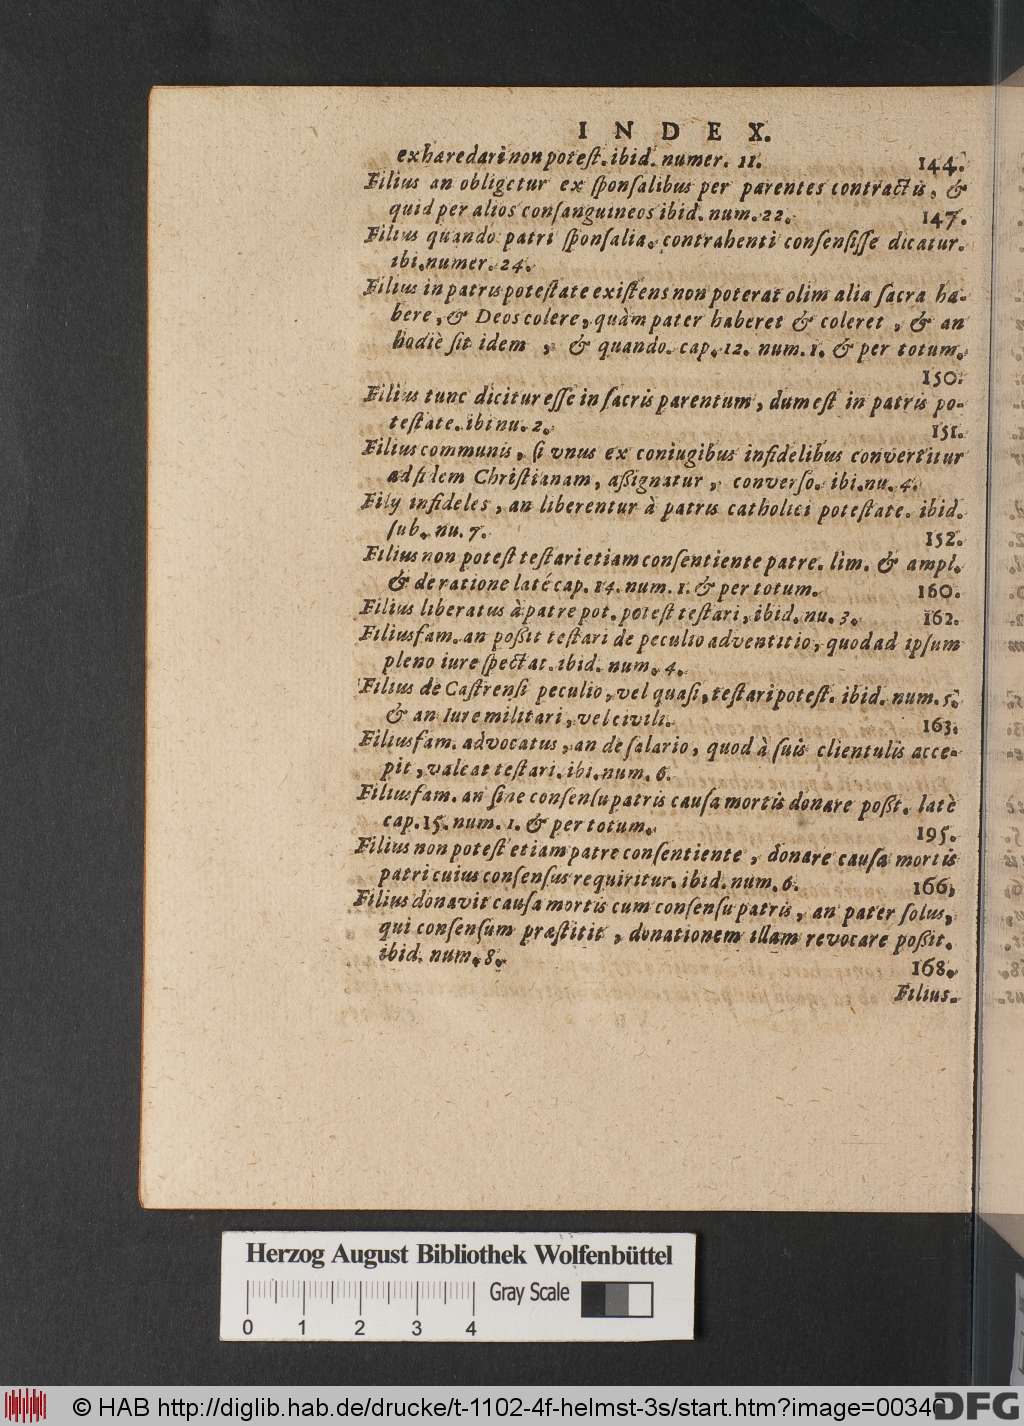 INDEX.
exhæredari non potest. ibid. numer. 11. 144.
Filius an obligetur ex sponsalibus per parentes contractis, &
quid per alios consanguineos ibid. num. 22. 147.
Filius quando patri sponsalia contrahenti consensisse dicatur.
ibi. numer. 24.
Filius in patris potestate existens non poterat olim alia sacra ha-
bere, & Deos colere, quàm pater haberet & coleret, & an
hodiè sit idem, & quando. cap. 12. num. 1. & per totum.
150.
Filius tunc dicitur esse in sacris parentum, dum est in patris po-
testate. ibi nu. 2. 151.
Filius communis, si vnus ex coniugibus infidelibus convertitur
ad fidem Christianam, aßignatur, converso. ibi. nu. 4.
Filij infideles, an liberentur à patris catholici potestate. ibid.
sub. nu. 7. 152.
Filius non potest testari etiam consentiente patre. lim. & ampl.
& de ratione laté cap. 14. num. 1. & per totum. 160.
Filius liberatus à patre pot. potest testari, ibid. nu. 3. 162.
Filiusfam. an poßit testari de peculio adventitio, quod ad ipsum
pleno iure spectat. ibid. num. 4.
Filius de Castrensi peculio, vel quasi, testari potest. ibid. num. 5.
& an Iure militari, vel civili. 163.
Filiusfam. advocatus, an de salario, quod à suis clientulis acce-
pit, valeat testari. ibi. num. 6.
Filiusfam. an sine consensu patris causa mortis donare poßt. latè
cap. 15. num. 1. & per totum. 195.
Filius non potest etiam patre consentiente, donare causa mortis
patri cuius consensus requiritur. ibid. num. 6. 166.
Filius donavit causa mortis cum consensu patris, an pater solus,
qui consensum præstitit, donationem illam revocare poßit.
ibid. num. 8. 168.
Filius.
Herzog August Bibliothek Wolfenbüttel
Gray Scale
0 1 2 3 4
© HAB http://diglib.hab.de/drucke/t-1102-4f-helmst-3s/start.htm?image=00340
DFG